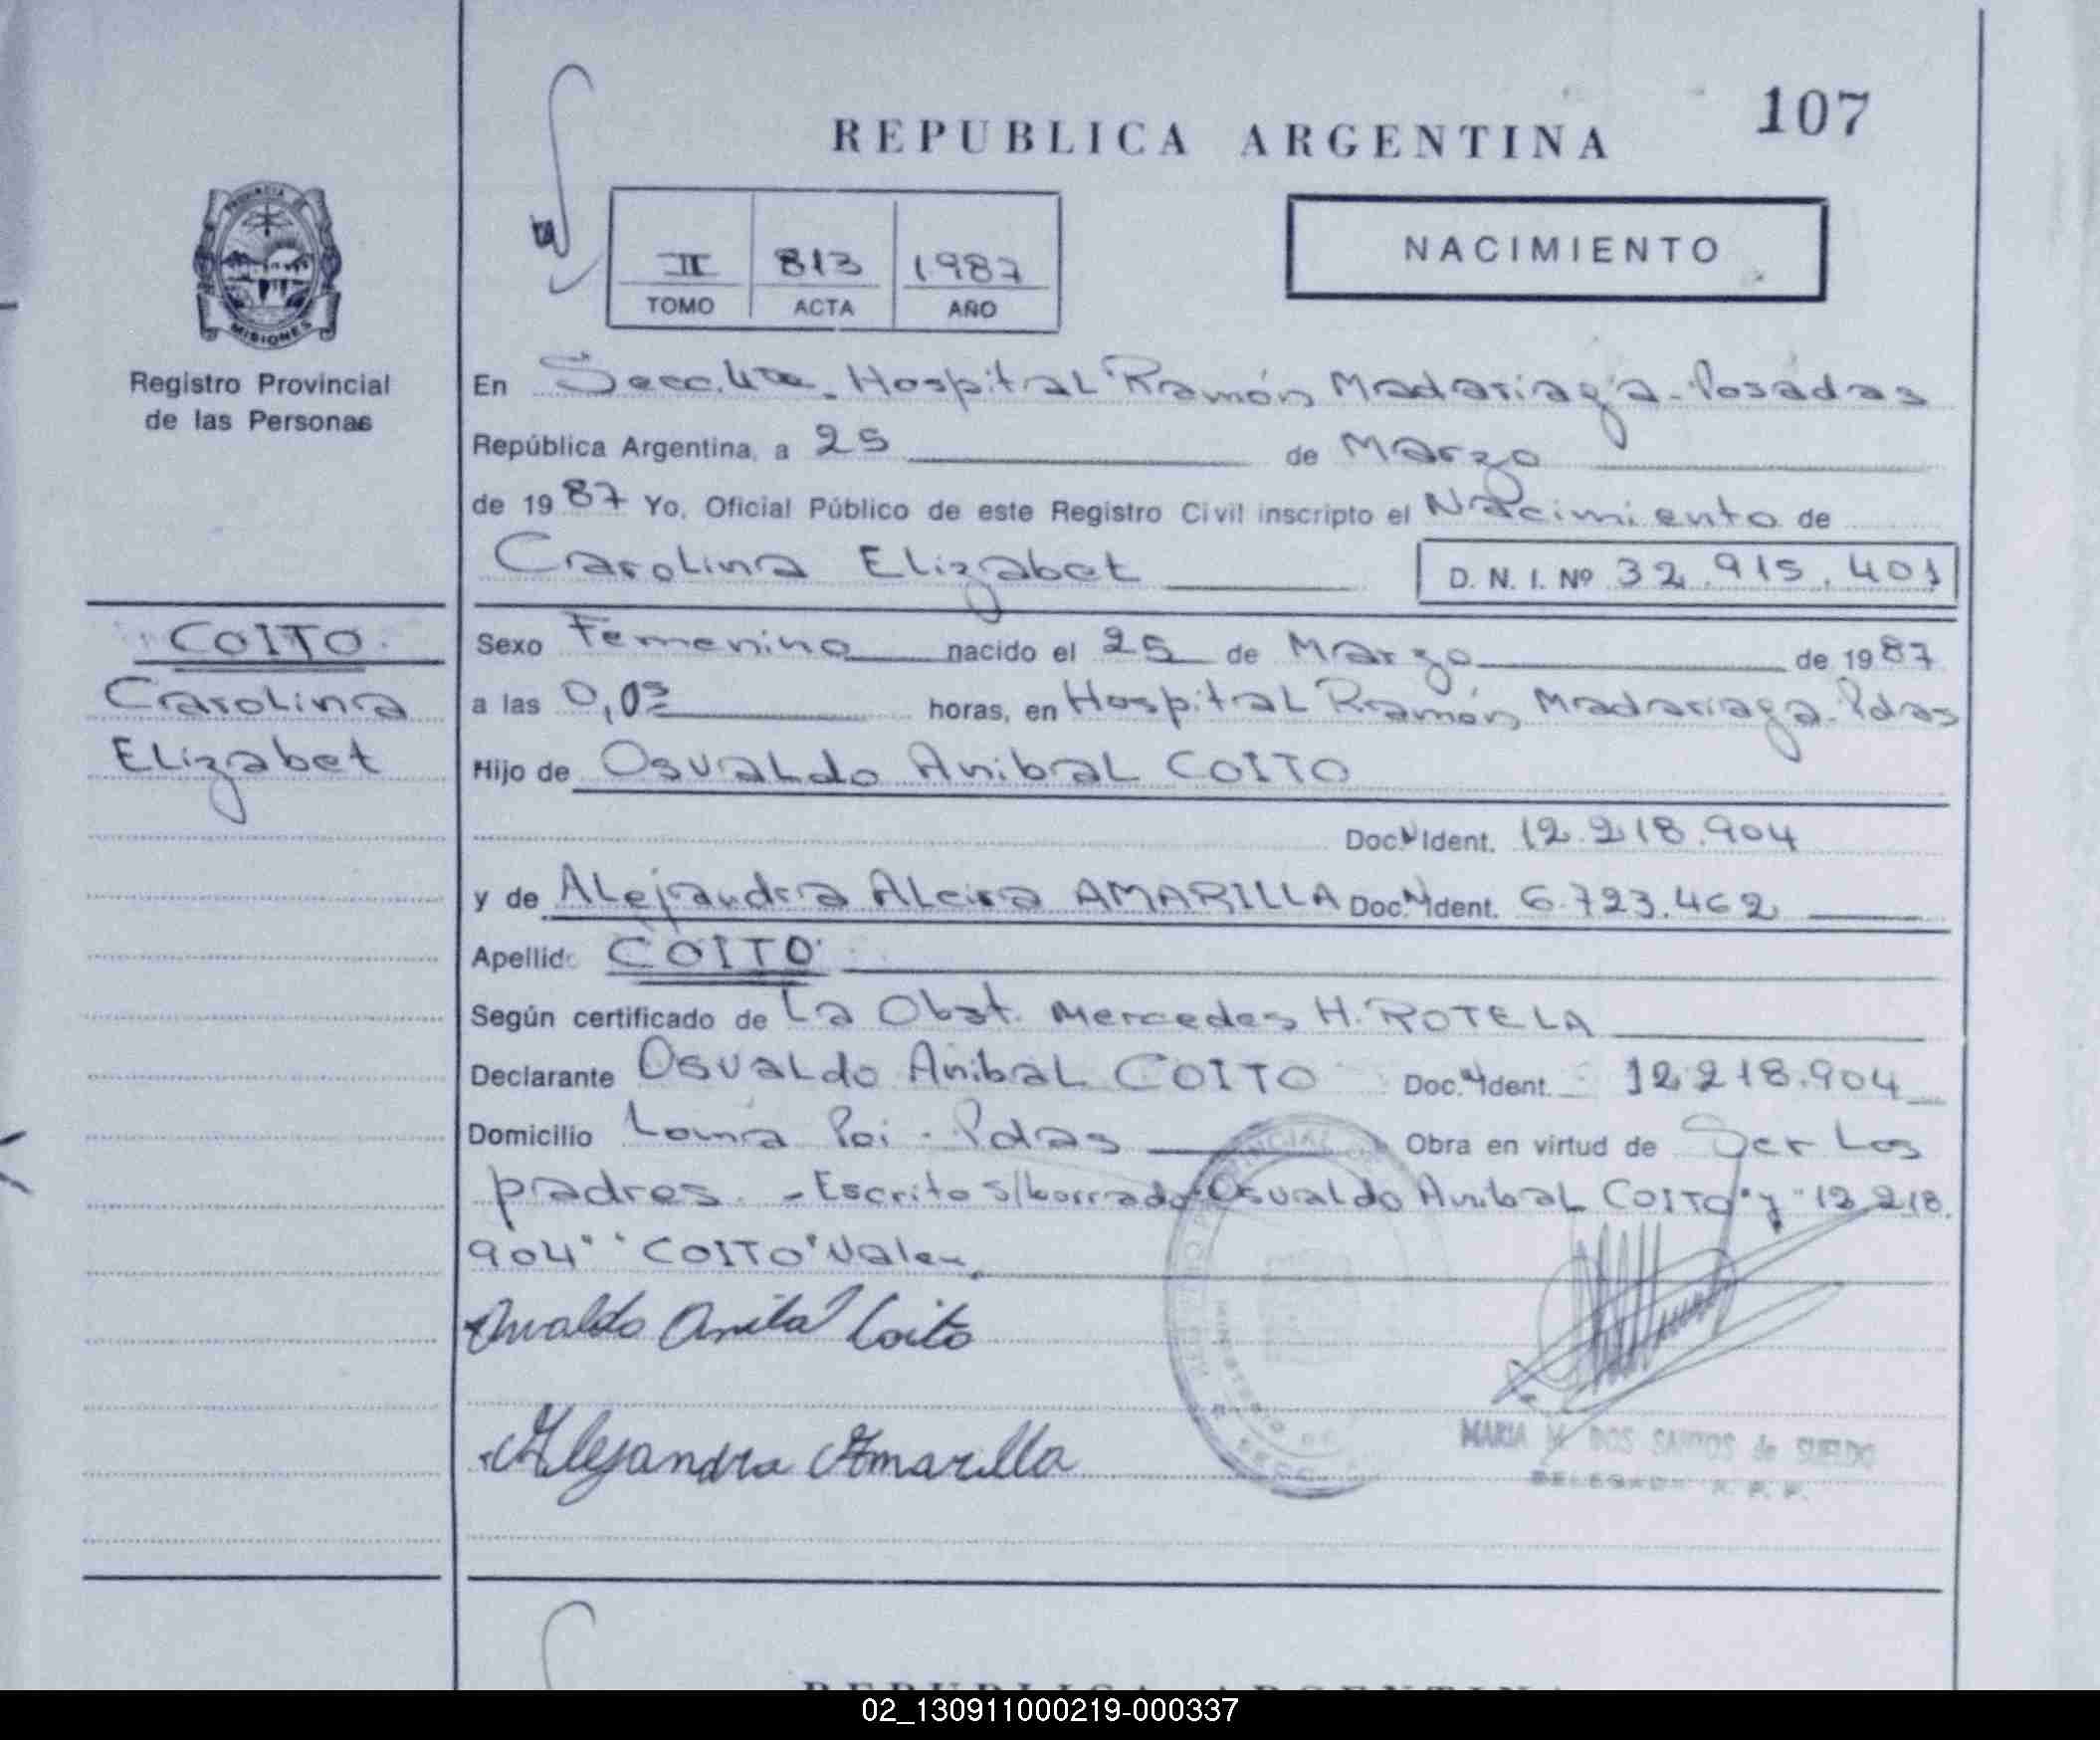 107
REPUBLICA ARGENTINA
PROVINCIA DE
MISIONES
Registro Provincial
de las Personas
II 813 1987
TOMO ACTA AÑO
NACIMIENTO
En Secc. 4ta. Hospital Ramón Madariaga - Posadas
República Argentina, a 25 de Marzo
de 1987 Yo, Oficial Público de este Registro Civil inscripto el Nacimiento de
Carolina Elizabet D. N. I. Nº 32.915.401
COITO
Carolina
Elizabet
Sexo Femenino nacido el 25 de Marzo de 1987
a las horas, en Hospital Ramón Madariaga - Pdas
Hijo de Osvaldo Anibal COITO
Doc. Ident. 12.218.904
y de Alejandra Alcira AMARILLA Doc. Ident. 6.723.462
Apellido COITO
Según certificado de La Obst. Mercedes H. ROTELA
Declarante Osvaldo Anibal COITO Doc. Ident. 12.218.904
Domicilio Loma Poi - Pdas Obra en virtud de Ser Los
padres. - Escrito s/borrado "Osvaldo Anibal COITO" y "12.218.
904" "COITO" Valen.
Osvaldo Anibal Coito
Alejandra Amarilla
MARIA M. DOS SANTOS de SUELDO
DELEGADA R. P. P.
REPUBLICA ARGENTINA
02_130911000219-000337